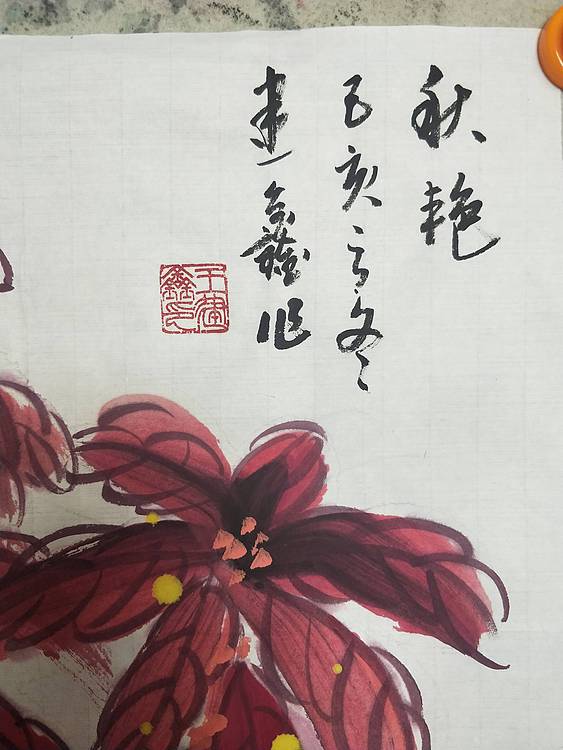 秋艳
己亥之冬
建鑫作
王建鑫印